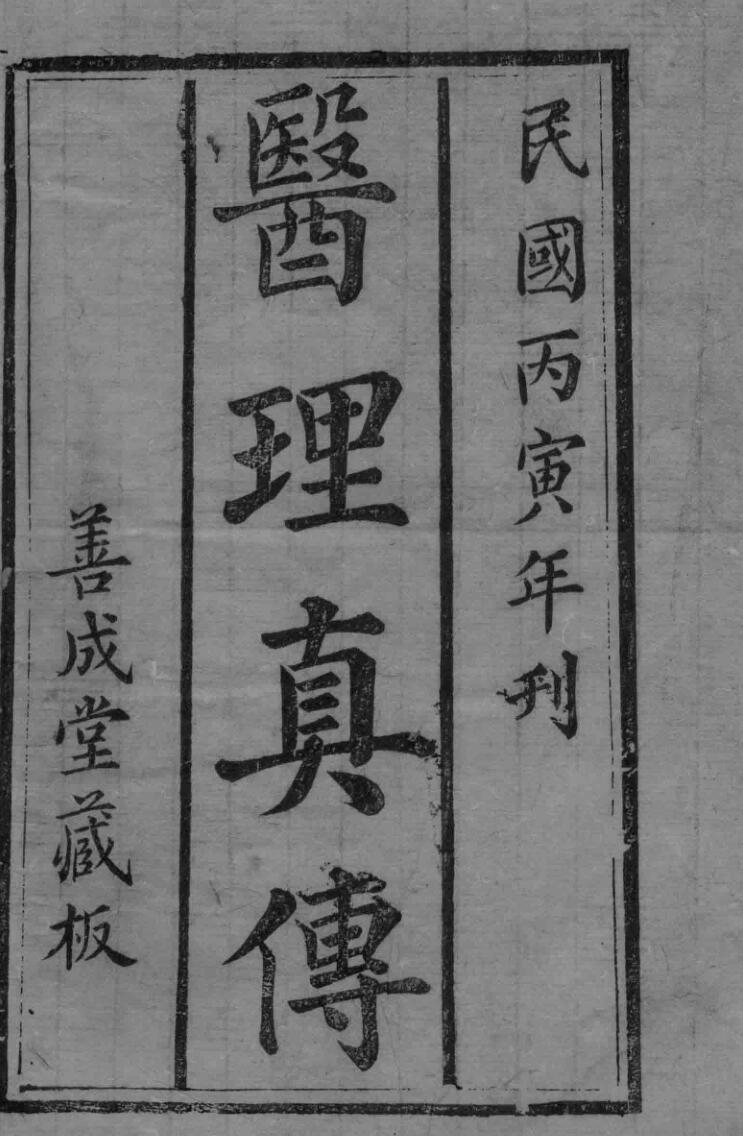 民國丙寅年刊
醫理真傳
善成堂藏板